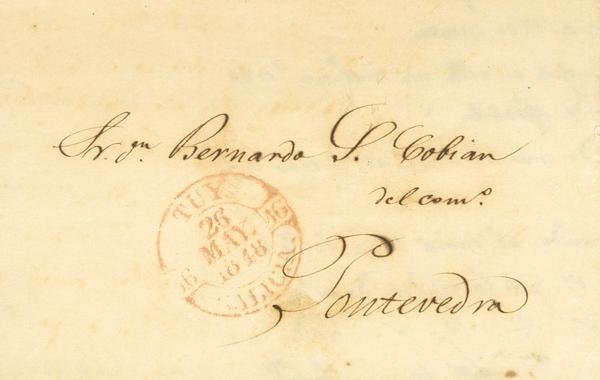 Sr. Dn. Bernardo S. Cobian
del comº.
Pontevedra
TUY
26
MAY.
1848
GALICIA
16